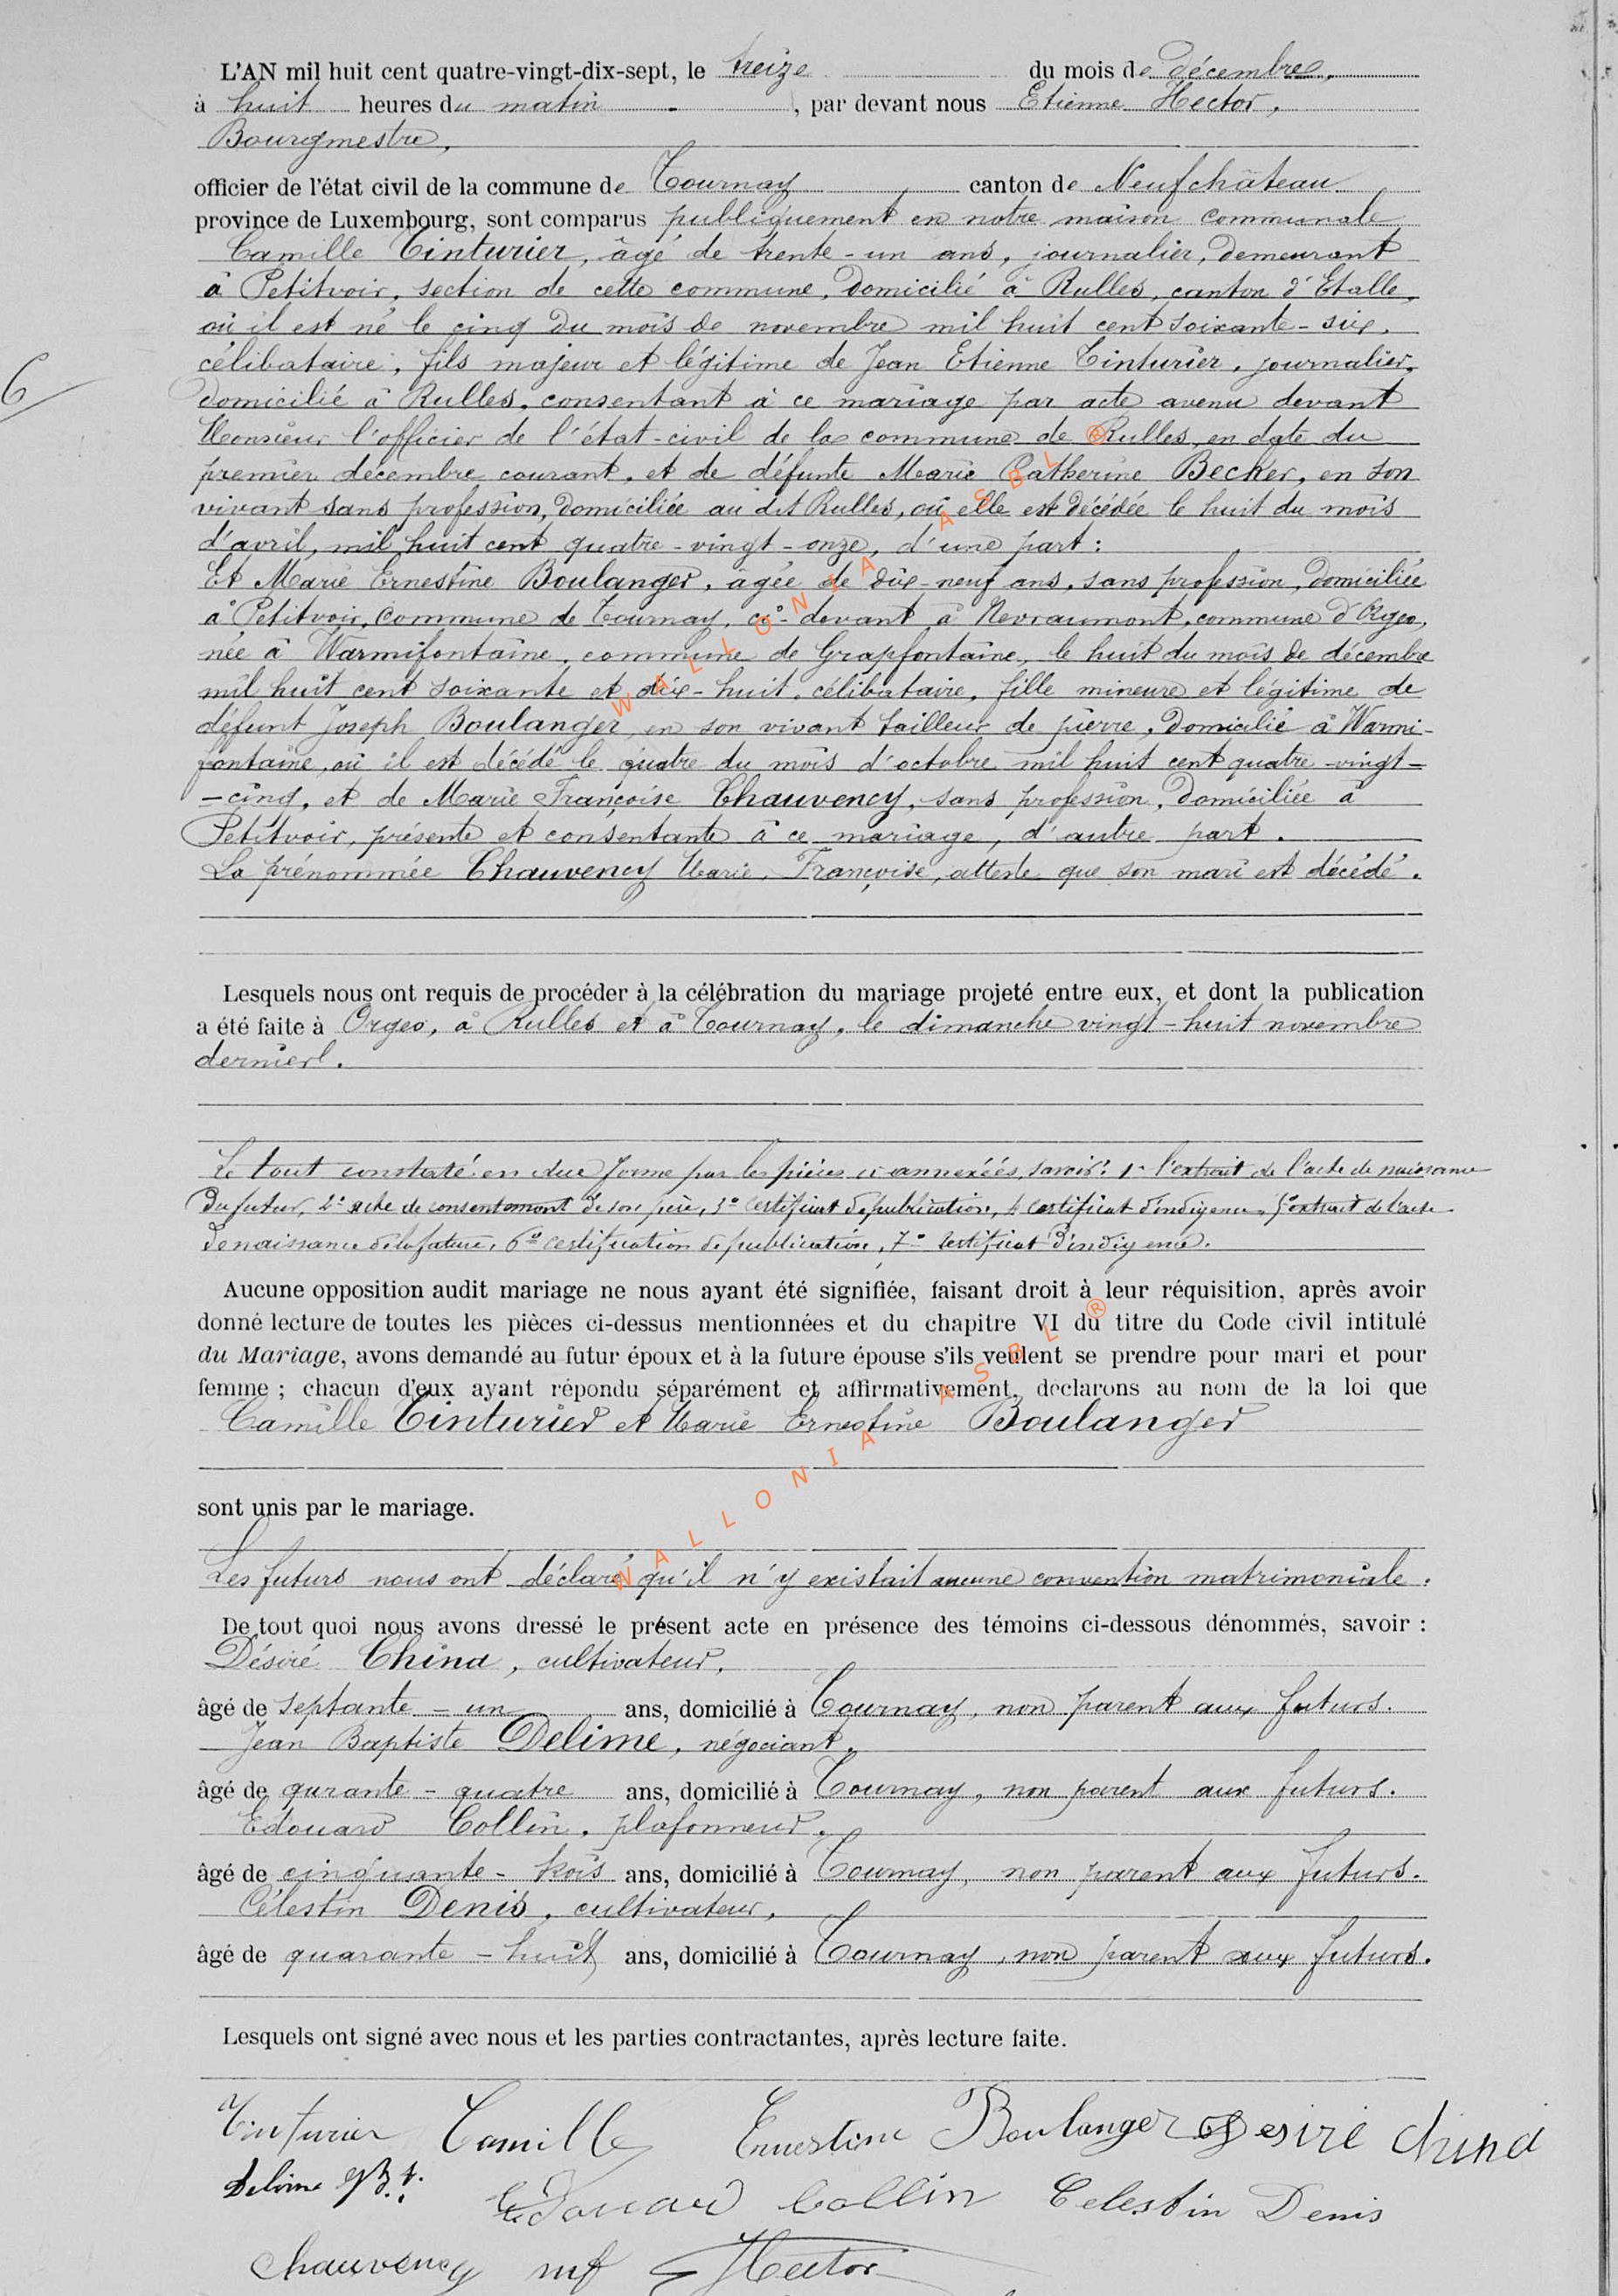 L'AN mil huit cent quatre-vingt-dix-sept, le treize du mois de décembre,
à huit heures du matin, par devant nous Etienne Hector,
Bourgmestre,
officier de l'état civil de la commune de Tournay canton de Neufchâteau
province de Luxembourg, sont comparus publiquement en notre maison communale
Camille Tinturier, âgé de trente-un ans, journalier, demeurant
à Petitvoir, section de cette commune, domicilié à Rulles, canton d'Etalle,
où il est né le cinq du mois de novembre mil huit cent soixante-six,
6
célibataire, fils majeur et légitime de Jean Etienne Tinturier, journalier,
domicilié à Rulles, consentant à ce mariage par acte avenu devant
Monsieur l'officier de l'état-civil de la commune de Rulles, en date du
premier décembre courant, et de défunte Marie Catherine Becker, en son
vivant sans profession, domiciliée au dit Rulles, où elle est décédée le huit du mois
d'avril, mil huit cent quatre-vingt-onze, d'une part:
Et Marie Ernestine Boulanger, âgée de dix-neuf ans, sans profession, domiciliée
à Petitvoir, commune de Tournay, ci-devant à Nevraumont, commune d'Orgeo,
née à Warmifontaine, commune de Grapfontaine, le huit du mois de décembre
mil huit cent soixante et dix-huit, célibataire, fille mineure et légitime de
défunt Joseph Boulanger, en son vivant tailleur de pierre, domicilié à Warmi-
fontaine, où il est décédé le quatre du mois d'octobre mil huit cent quatre-vingt-
-cinq, et de Marie Françoise Chauvency, sans profession, domiciliée à
Petitvoir, présente et consentante à ce mariage, d'autre part.
La prénommée Chauvency Marie, Françoise, atteste que son mari est décédé.
Lesquels nous ont requis de procéder à la célébration du mariage projeté entre eux, et dont la publication
a été faite à Orgeo, à Rulles et à Tournay, le dimanche vingt-huit novembre
dernier.
Le tout constaté en due forme par les pièces ci-annexées, savoir: 1° l'extrait de l'acte de naissance
du futur, 2° acte de consentement de son père, 3° certificat de publication, 4° certificat d'indigence, 5° extrait de l'acte
de naissance de la future, 6° certification de publication, 7° certificat d'indigence.
Aucune opposition audit mariage ne nous ayant été signifiée, faisant droit à leur réquisition, après avoir
donné lecture de toutes les pièces ci-dessus mentionnées et du chapitre VI du titre du Code civil intitulé
du Mariage, avons demandé au futur époux et à la future épouse s'ils veulent se prendre pour mari et pour
femme ; chacun d'eux ayant répondu séparément et affirmativement, déclarons au nom de la loi que
Camille Tinturier et Marie Ernestine Boulanger
sont unis par le mariage.
Les futurs nous ont déclaré qu'il n'y existait aucune convention matrimoniale.
De tout quoi nous avons dressé le présent acte en présence des témoins ci-dessous dénommés, savoir :
Désiré China, cultivateur,
âgé de septante-un ans, domicilié à Tournay, non parent aux futurs.
Jean Baptiste Delime, négociant,
âgé de qurante-quatre ans, domicilié à Tournay, non parent aux futurs.
Edouard Collin, plafonneur,
âgé de cinquante-trois ans, domicilié à Tournay, non parent aux futurs.
Célestin Denis, cultivateur,
âgé de quarante-huit ans, domicilié à Tournay, non parent aux futurs.
Lesquels ont signé avec nous et les parties contractantes, après lecture faite.
Tinturier Camille Ernestine Boulanger Desiré China
Delime JBt. Edouard Collin Celestin Denis
Chauvency mf Hector
WALLONIA ASBL ®
WALLONIA ASBL ®